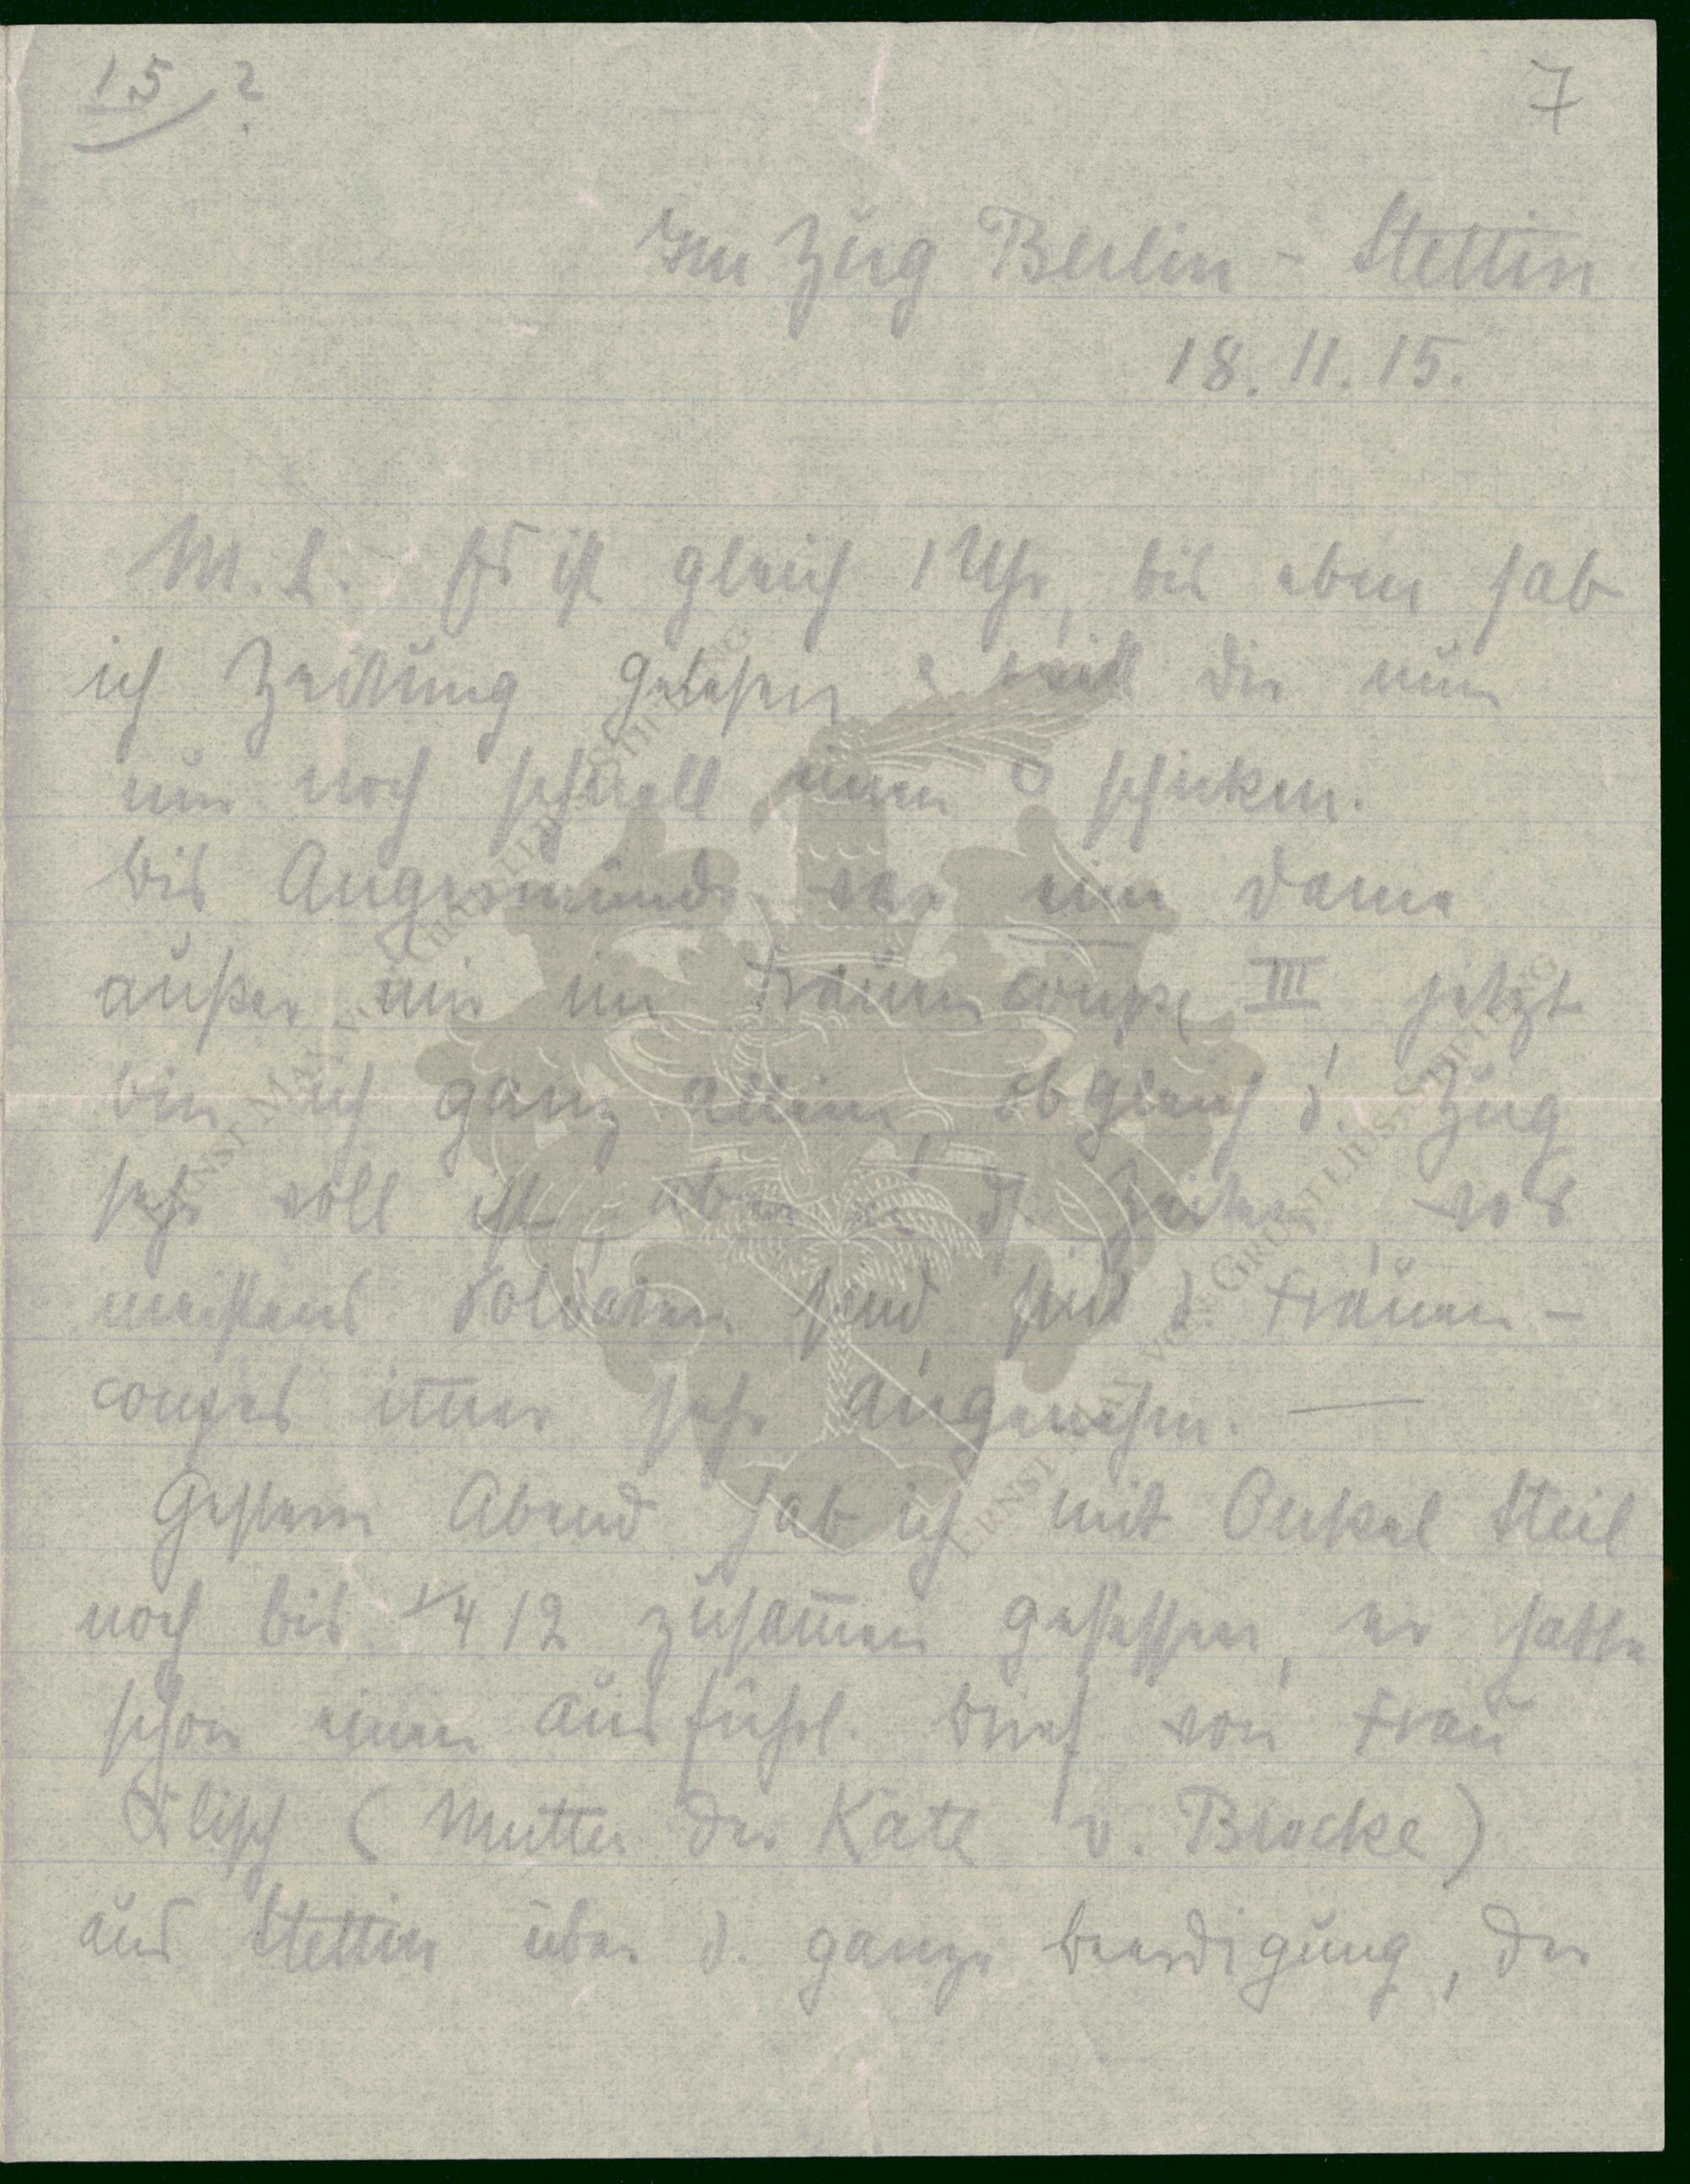 15 ?
7
Im Zug Berlin - Stettin
18. 11. 15.
M. L. Es ist gleich 1 Uhr, bis eben hab
ich Zeitung gelesen & will dir nun
nur noch schnell einen schicken.
bis Angermünde war eine Dame
außer mir im Frauencoupe III jetzt
bin ich ganz allein, obgleich d. Zug
sehr voll ist, aber in d. Zeiten wo
meistens Soldaten sind, sind d. Frauen-
coupes immer sehr angenehm. —
Gestern Abend hab ich mit Onkel Steil
noch bis 1/4 12 zusammen gesessen, er hatte
schon einen ausführl. Brief von Frau
(Mutter der Käte v. Brocke)
aus Stettin über d. ganze Beerdigung, der
ERNST MAX VON GRUNELIUS-STIFTUNG
ERNST MAX VON GRUNELIUS-STIFTUNG